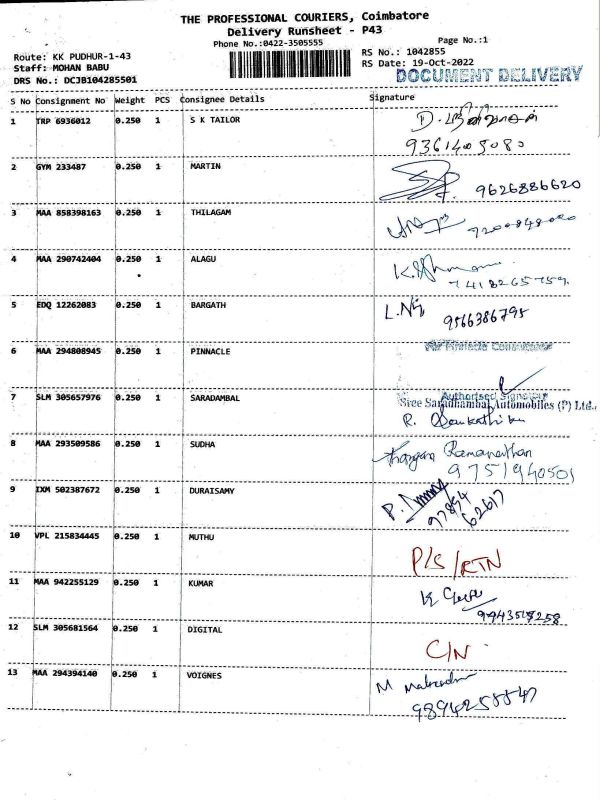 THE PROFESSIONAL COURIERS, Coimbatore
Delivery Runsheet - P43
Phone No.:0422-3505555
Page No.:1
Route: KK PUDHUR-1-43
RS No.: 1042855
Staff: MOHAN BABU
RS Date: 19-Oct-2022
DRS No.: DCJB104285501
DOCUMENT DELIVERY
S No Consignment No Weight PCS Consignee Details Signature
1 TRP 6936012 0.250 1 S K TAILOR
2 GYM 233487 0.250 1 MARTIN
9626886620
3 MAA 858398163 0.250 1 THILAGAM
4 MAA 290742404 0.250 1 ALAGU
7418265759
5 EDQ 12262083 0.250 1 BARGATH
9566386795
6 MAA 294808945 0.250 1 PINNACLE
For Pinnacle Consultancy
Authorised Signatory
7 SLM 305657976 0.250 1 SARADAMBAL
Sree Saradhambal Automobiles (P) Ltd.,
R.
8 MAA 293509586 0.250 1 SUDHA
Ramanathan
9751940501
9 IXM 502387672 0.250 1 DURAISAMY
97894
62617
10 VPL 215834445 0.250 1 MUTHU
P/S/RTN
11 MAA 942255129 0.250 1 KUMAR
12 SLM 305681564 0.250 1 DIGITAL
C/N
13 MAA 294394140 0.250 1 VOIGNES
M